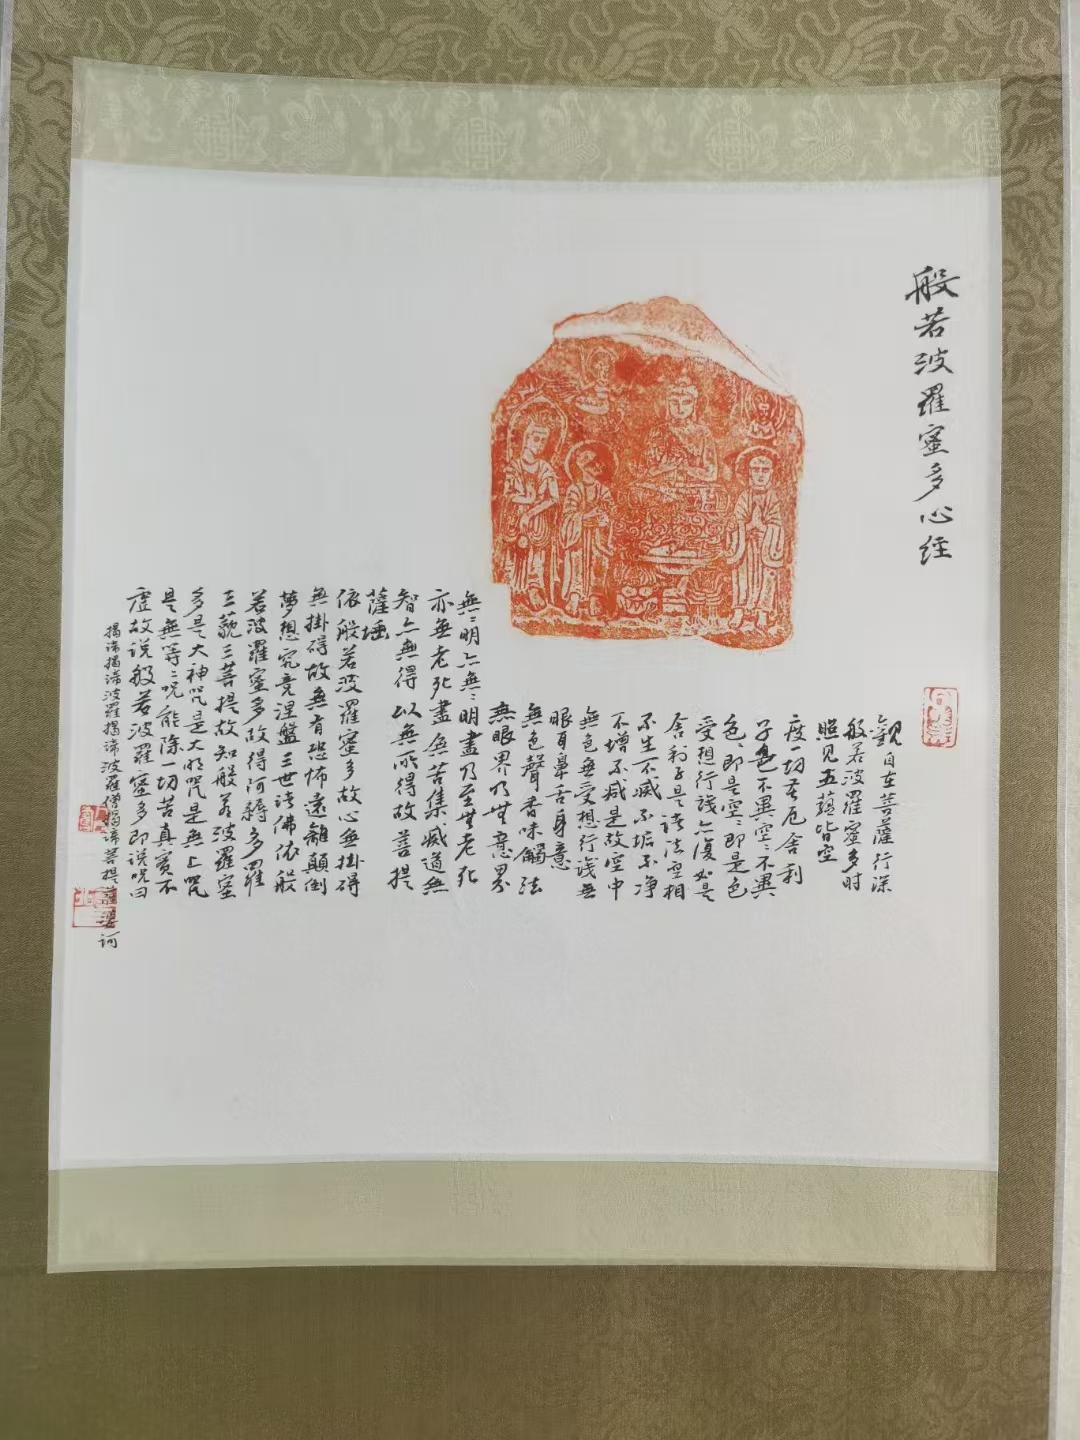 般若波羅蜜多心经
觀自在菩薩行深
般若波羅蜜多时
照见五蕴皆空
度一切苦厄舍利
子色不異空〻不異
色〻即是空〻即是色
受想行識亦復如是
舍利子是诸法空相
不生不滅不垢不净
不增不减是故空中
無色無受想行識無
眼耳鼻舌身意
無色聲香味觸法
無眼界乃至無意界
無〻明亦無〻明盡乃至無老死
亦無老死盡無苦集滅道無
智亦無得以無所得故菩提
薩埵
依般若波羅蜜多故心無掛碍
無掛碍故無有恐怖遠離顛倒
夢想究竟涅盤三世诸佛依般
若波羅蜜多故得阿耨多羅
三藐三菩提故知般若波羅蜜
多是大神咒是大明咒是無上咒
是無等〻咒能除一切苦真實不
虛故说般若波羅蜜多即说咒曰
揭谛揭谛波羅揭谛波羅僧揭谛菩提薩婆诃